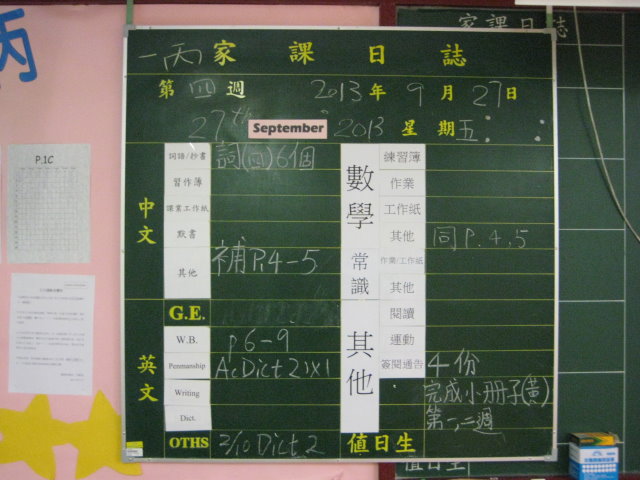 丙
P.1C
家課日誌
一丙 家課日誌
第 四 週 2013 年 9 月 27 日
27th September 2013 星期 五
中文
詞語/抄書 詞(四)6個
習作簿
課業工作紙
默書
其他 補P.4-5
G.E.
英文
W.B. p6-9
Penmanship
Writing
Dict.
OTHS 3/10 Dict 2
數學
練習簿
作業
工作紙
其他 同P.4.5
常識
作業/工作紙
其他
其他
閱讀
運動
簽閱通告 4份
完成小冊子(黃)
第一,二週
值日生
值日生